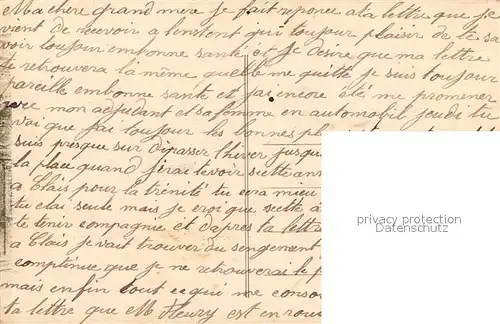 Ma chere grand mere je fait reponce a ta lettre que je
vient de recevoir a l'instent qui toujour plaisir de te sa
voir toujour enbonne santé et je desire que ma lettre
te retrouvera la même quelle me quitte je suis toujour
pareille enbonne sante et j'ai encore été me promener
avec mon adjudant et sa femme en automobil jeudi tu
vai que j'ai toujour les bonnes
suis presque sur dipasser l'hiver jusqu
la place quand j'irai te voir sette an
a Clais pour la trénité tu cera mieu
tu etai seule mais je croi que sette a
te tenir compagnie et d'apres ta lettre
a Clais je vait trouver du sengement
comptinue que je ne retrouverai le p
mais enfin tout ce qui me conso
ta lettre que M Fleury est en rou
privacy protection
www.delcampe.net